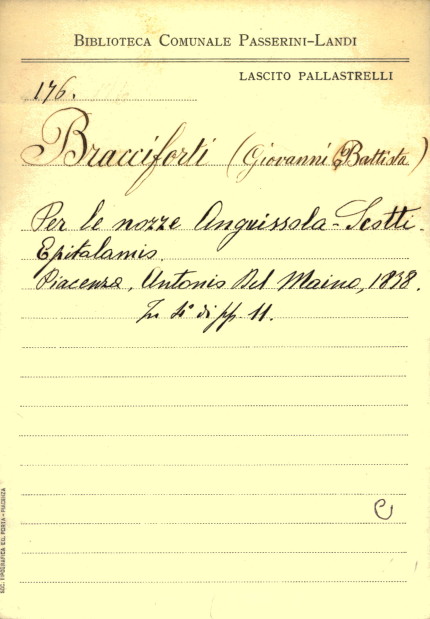 BIBLIOTECA COMUNALE PASSERINI-LANDI
LASCITO PALLASTRELLI
176.
Bracciforti (Giovanni Battista)
Per le nozze Anguissola-Scotti.
Epitalamio.
Piacenza, Antonio Del Maino, 1838.
In 4° di pp. 11.
C
SOC. TIPOGRAFICA ED. PORTA - PIACENZA